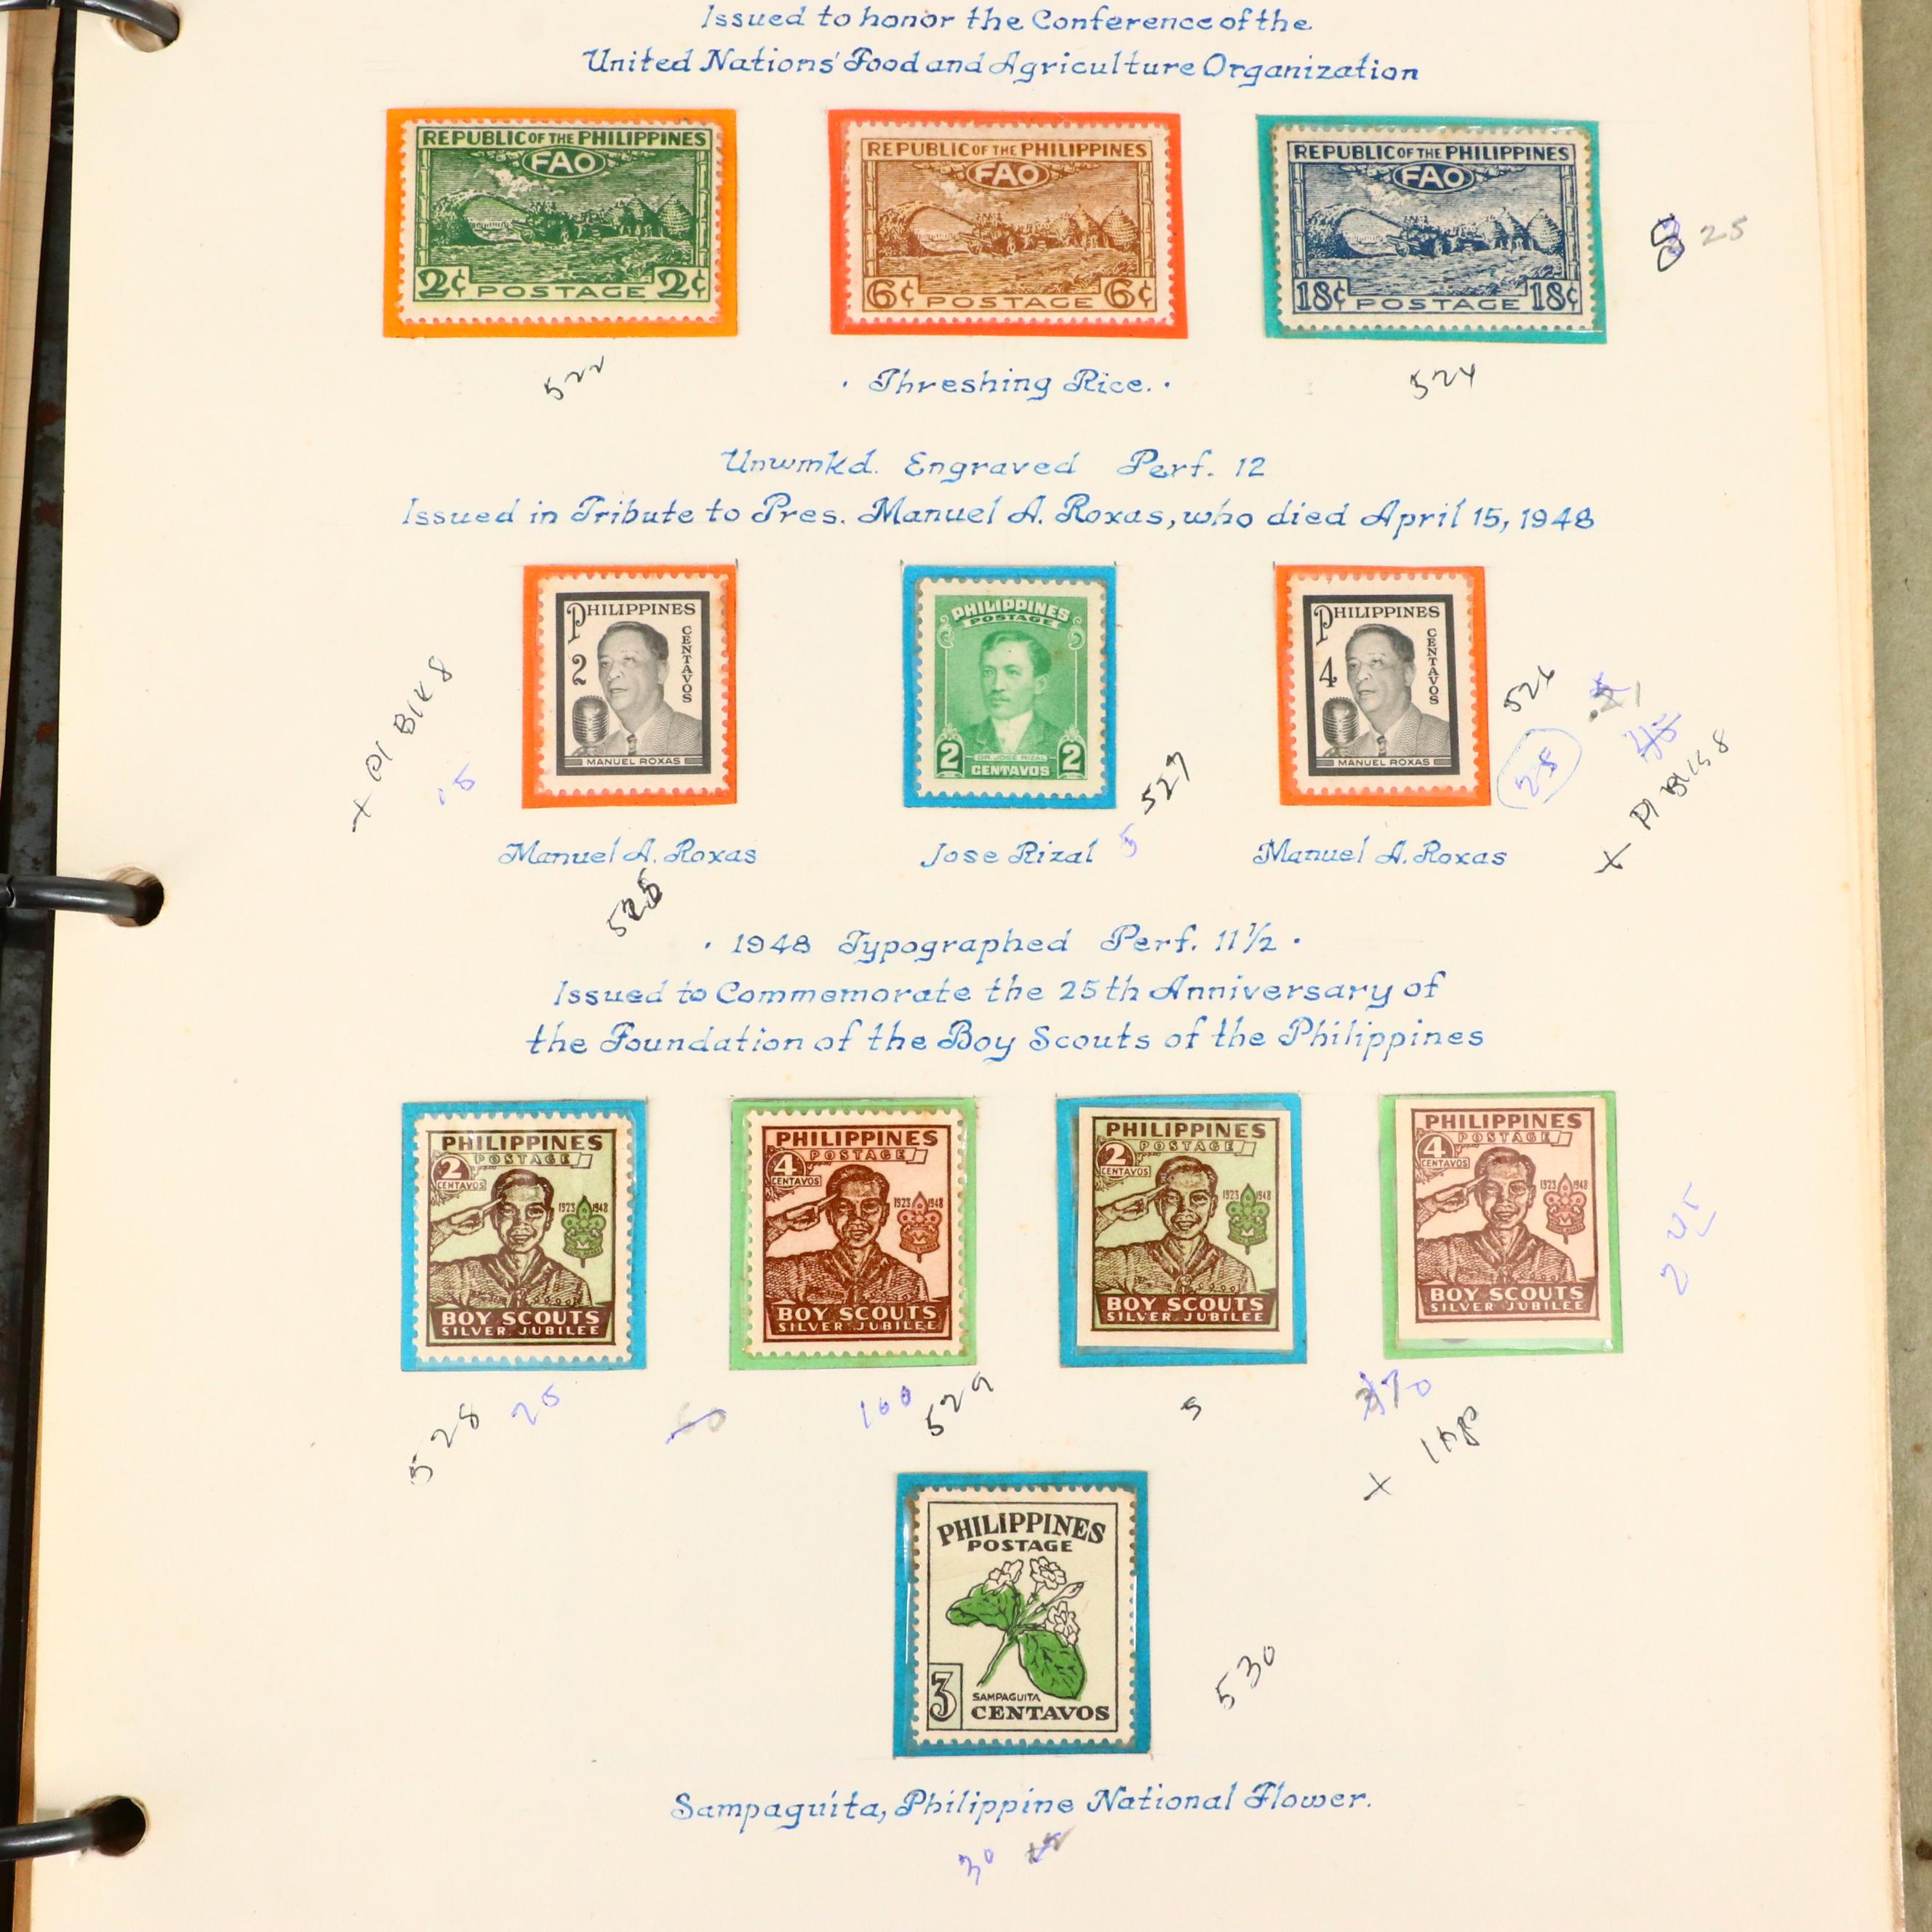 Issued to honor the Conference of the
United Nations' Food and Agriculture Organization
REPUBLIC OF THE PHILIPPINES
FAO
2¢ POSTAGE 2¢
REPUBLIC OF THE PHILIPPINES
FAO
6¢ POSTAGE 6¢
REPUBLIC OF THE PHILIPPINES
FAO
18¢ POSTAGE 18¢
25
522
· Threshing Rice. ·
524
Unwmkd. Engraved Perf. 12
Issued in Tribute to Pres. Manuel A. Roxas, who died April 15, 1948
PHILIPPINES
2
CENTAVOS
MANUEL ROXAS
PHILIPPINES
POSTAGE
2 2
DR. JOSE RIZAL
CENTAVOS
PHILIPPINES
4
CENTAVOS
MANUEL ROXAS
+ Pl Blk 8
527
526
25
+ Pl Blks 8
Manuel A. Roxas
Jose Rizal 5
Manuel A. Roxas
· 1948 Typographed Perf. 11½ ·
Issued to Commemorate the 25th Anniversary of
the Foundation of the Boy Scouts of the Philippines
PHILIPPINES
POSTAGE
2
CENTAVOS
1923 1948
BOY SCOUTS
SILVER JUBILEE
PHILIPPINES
POSTAGE
4
CENTAVOS
1923 1948
BOY SCOUTS
SILVER JUBILEE
PHILIPPINES
POSTAGE
2
CENTAVOS
1923 1948
BOY SCOUTS
SILVER JUBILEE
PHILIPPINES
POSTAGE
4
CENTAVOS
1923 1948
BOY SCOUTS
SILVER JUBILEE
528 25
160 529
PHILIPPINES
POSTAGE
3
SAMPAGUITA
CENTAVOS
530
Sampaguita, Philippine National Flower.
30